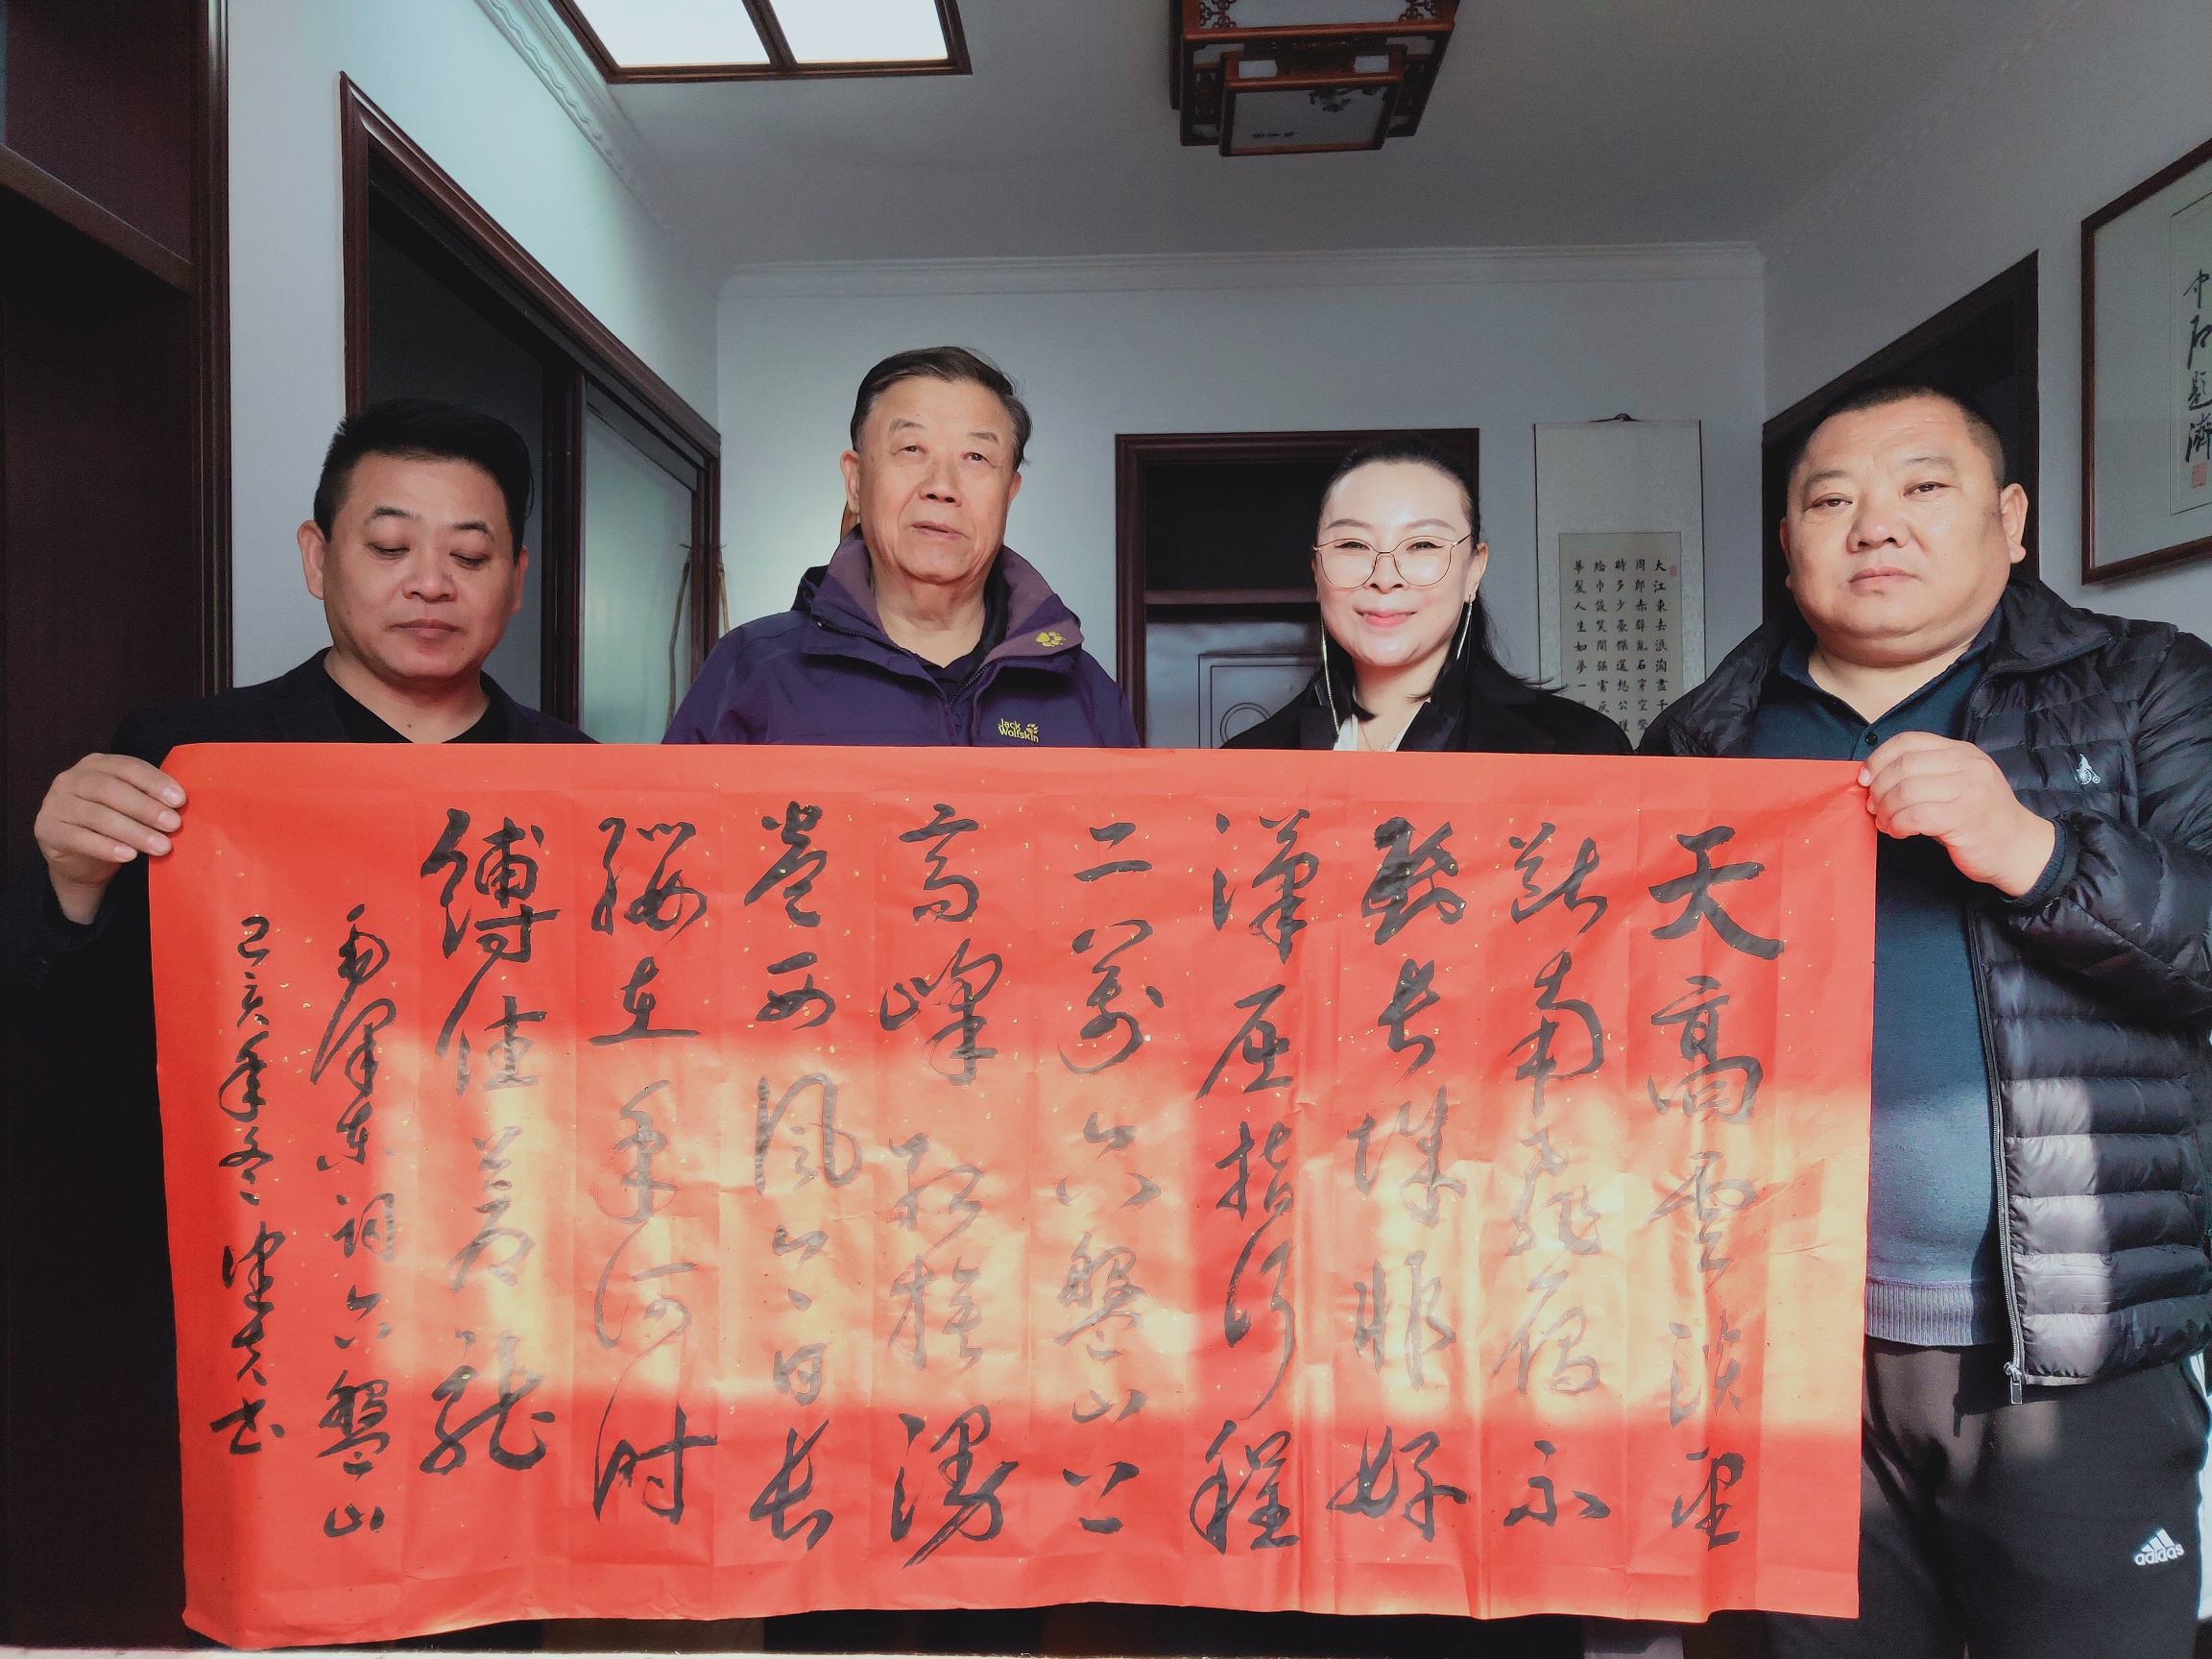 天高雲淡望
断南飛雁不
到长城非好
漢屈指行程
二萬六盤山上
高峰红旗漫
卷西风今日长
缨在手何时
缚住苍龍
毛泽东词六盤山
己亥年冬 书
大江東去浪淘盡千
周郎赤壁亂石穿空驚
時多少豪傑遥想公瑾
綸巾談笑間强虜灰
華髮人生如夢一
中石题
Jack
Wolfskin
adidas